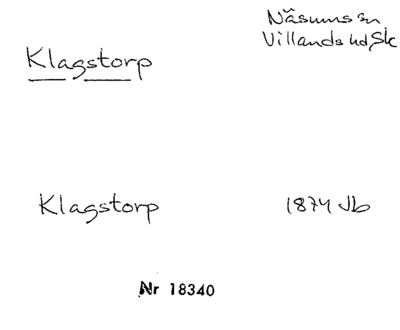 Näsums sn
Villands hd, Sk
Klagstorp
Klagstorp 1874 Jb
Nr 18340